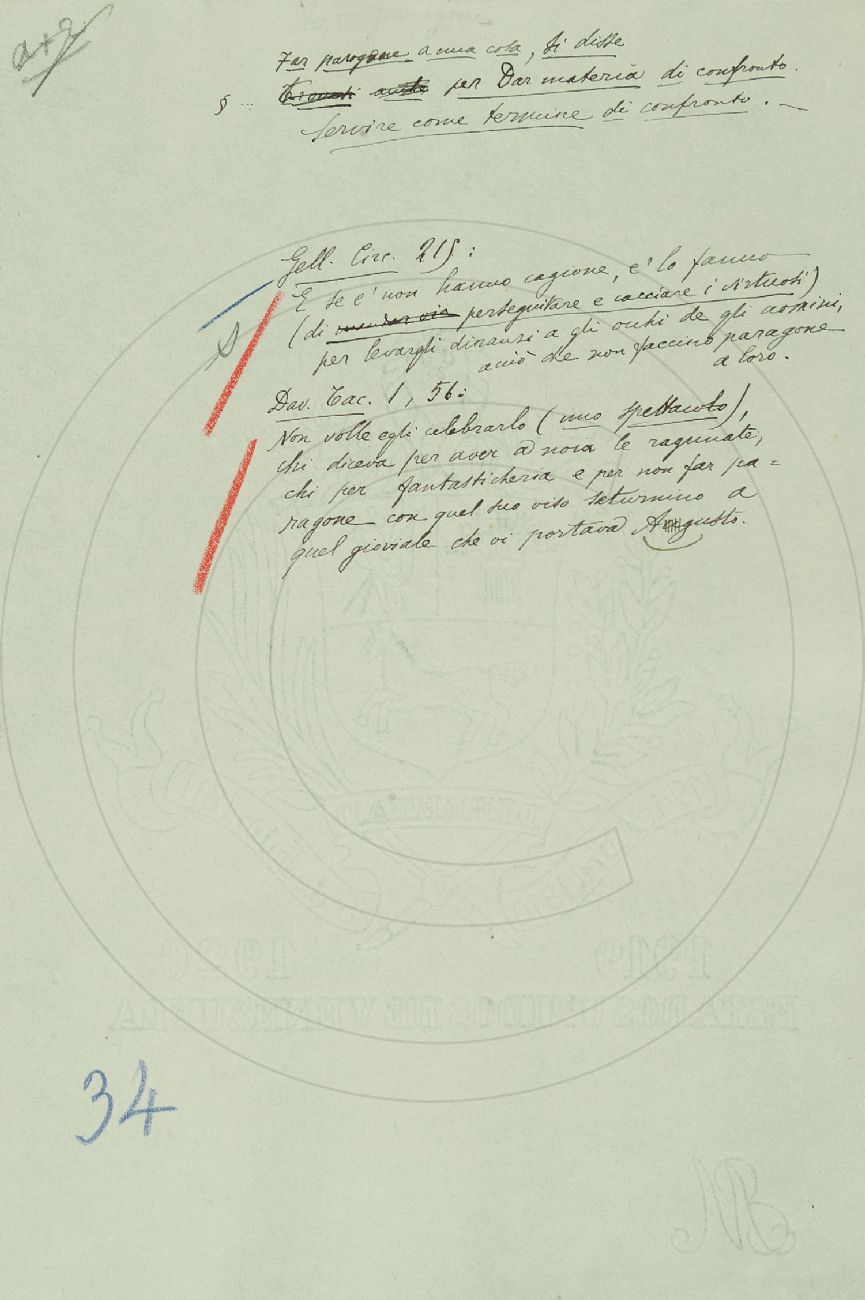 Far paragone a una cosa, si disse
§ ... per Dar materia di confronto.
Servire come termine di confronto. —
Gell. Circ. 215:
E se e' non hanno cagione, e' lo fanno
(di perseguitare e cacciare i virtuosi)
per levargli dinanzi a gli occhi de gli uomini,
acciò che non faccino paragone
a loro.
Dav. Tac. 1, 56:
Non volle egli celebrarlo (uno spettacolo),
chi diceva per aver a noia le ragunate,
chi per fantasticheria e per non far pa=
ragone con quel suo viso saturnino a
quel gioviale che vi portava Augusto.
1919
1920
ESTADOS UNIDOS DE VENEZUELA
34